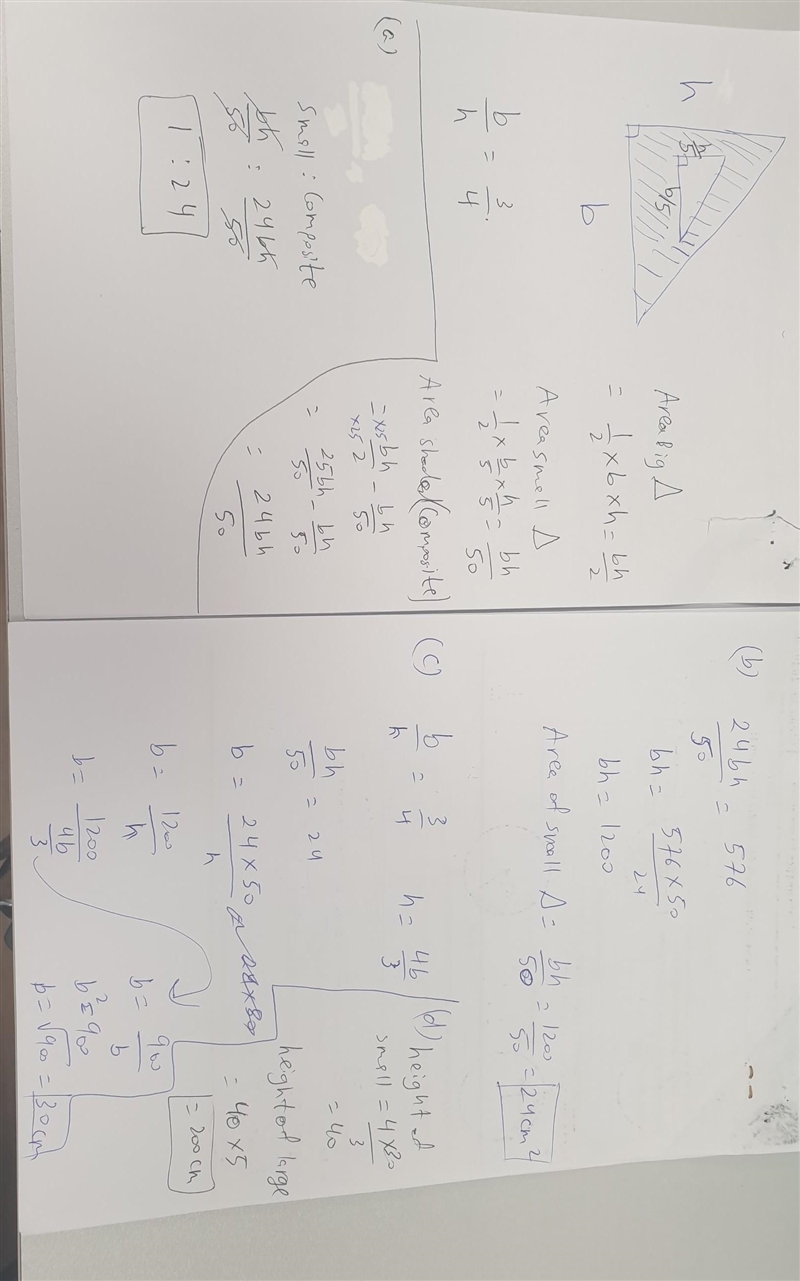 h
h/5
b/5
b
b/h = 3/4.
Area Big △
= 1/2 × b × h = bh/2
Area small △
= 1/2 × b/5 × h/5 = bh/50
Area shaded (composite)
= ×25 bh/×25 2 - bh/50
= 25bh/50 - bh/50
= 24bh/50
(a)
small : composite
bh/50 : 24bh/50
1 : 24
(b) 24bh/50 = 576
bh = 576×50/24
bh = 1200
Area of small △ = bh/50 = 1200/50 = 24cm²
(c) b/h = 3/4 h = 4b/3
bh/50 = 24
b = 24×50/h
b = 1200/h
b = 1200/4b/3
b = 900/b
b² = 900
b = √900 = 30cm
(d) height of
small = 4×30/3
= 40
height of large
= 40×5
= 200cm